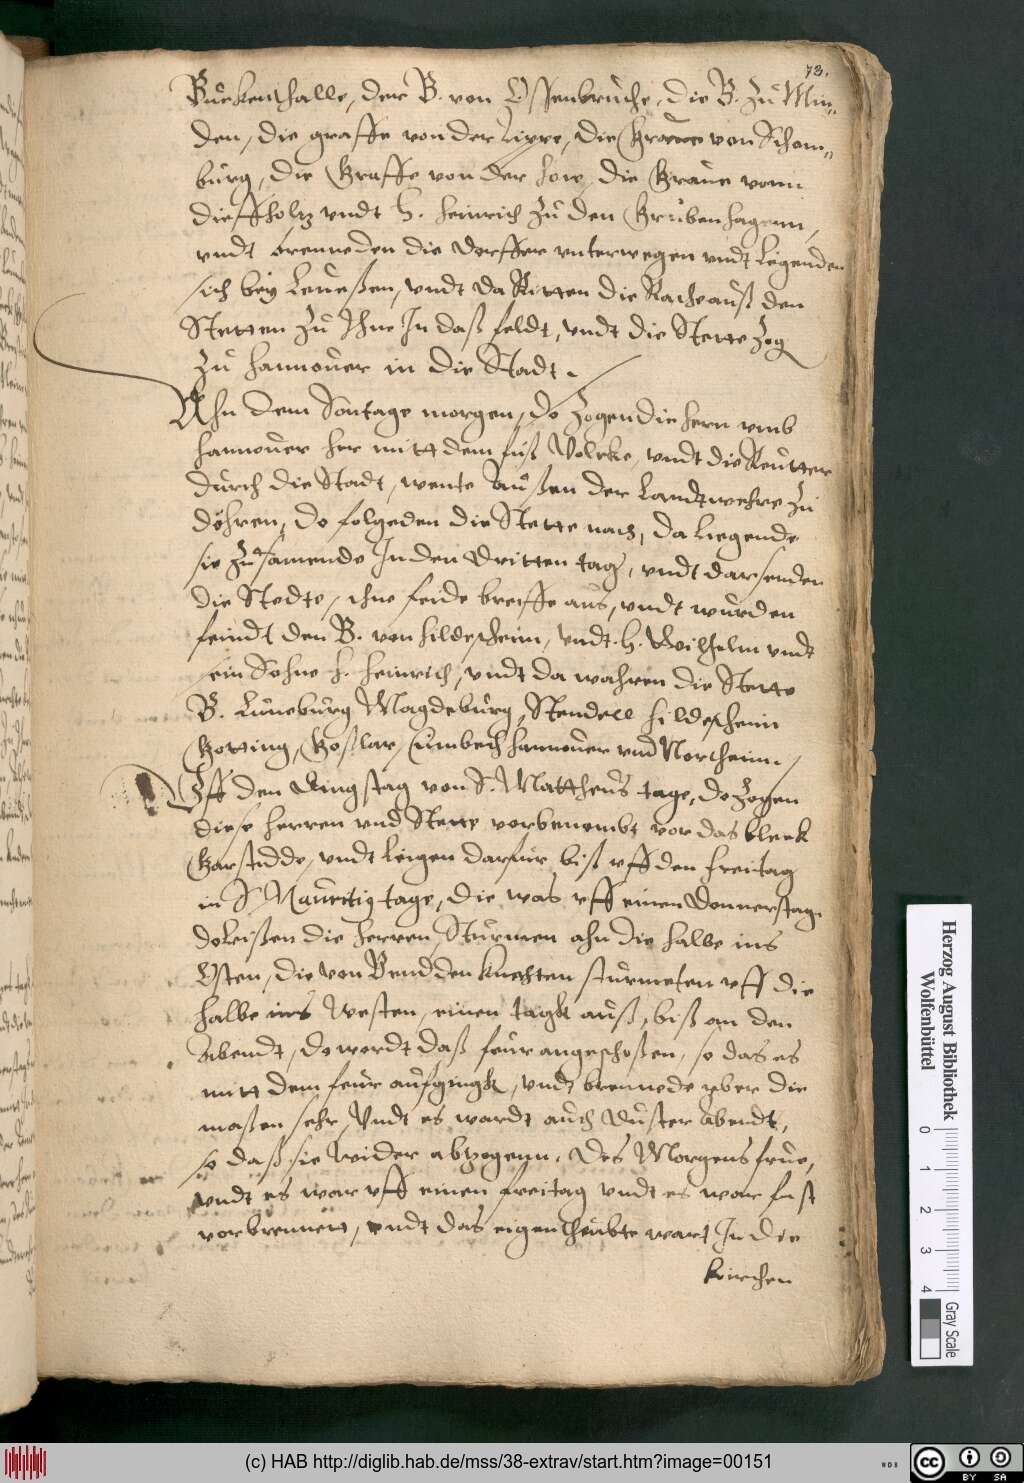 73.
Buckenhalle, der B. von Ossenbruche, die B. zu Min-
den, die graffe von der Lippe, die Graue von Schom-
burg, die Graffe von der hoie, die Graue vonn
dieffholz vndt H. Heinrich zu den Grubenhagenn,
vndt brenneden die dorffer vnterwegen vndt legenden
sich bey Leueßen, vndt da Ritten die Rache auß den
Stetten zu Ihne In daß feldt, vndt die Stette zog
zu Hannouer in die Stadt.
Ahn dem Sontage morgen, do zogen die hern vmb
Hannouer her mitt dem fuß Volcke, vndt die Reutter
durch die Stadt, wente Außen der Landtwehre zu
döhren, do folgeden die Stette nach, da liegende
sie zusamende In den dritten tag, vndt darsenden
die Stedte, ihne feide breiffe aus, vndt wurden
feindt den B. von Hildescheim, vndt H. Wilhelm vndt
sein Sohne H. Heinrich, vndt da wahren die Stette
B. Luneburg Magdeburg, Stendell Hildescheim
Gotting, Goslar, Eimbech Hannouer vnd Northeim.
Vff den Dingstag von S. Mattheus tage, do zogen
diese herren vnd Stette vorbenombt vor das bleek
Garstidde, vndt leigen darfur biß vff den freitag
in S Mauritig tage, die was vff einen Donnerstag.
do leißen die herren Sturmen ahn die halbe ins
Osten, die von Vend den knechten sturmeten vff die
halbe ins Westen, einen tagk auß, biß an den
Abendt, do wordt daß feur angeschoßen, so das es
mitt dem feur aufgingk, vndt brennede yber die
maßen sehr, Vndt es wardt auch duster abendt,
so daß sie wider abzogenn. Des Morgens frue,
vndt es war vff einen freitag vndt es war fast
vorbrennett, vndt das eigentheubte wart In die
kirchen
Herzog August Bibliothek
Wolfenbüttel
0 1 2 3 4
Gray Scale
(c) HAB http://diglib.hab.de/mss/38-extrav/start.htm?image=00151
WDB
cc BY SA